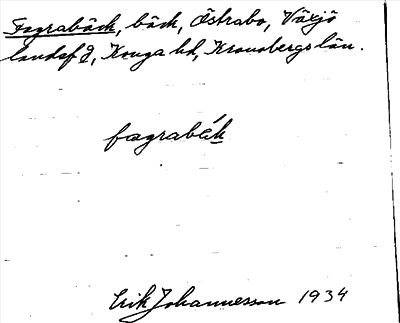 Fagrabäck, bäck, Östrabo, Växjö
landsf g, Konga hd, Kronobergs län.
fagrabäk
Erik Johannesson 1934